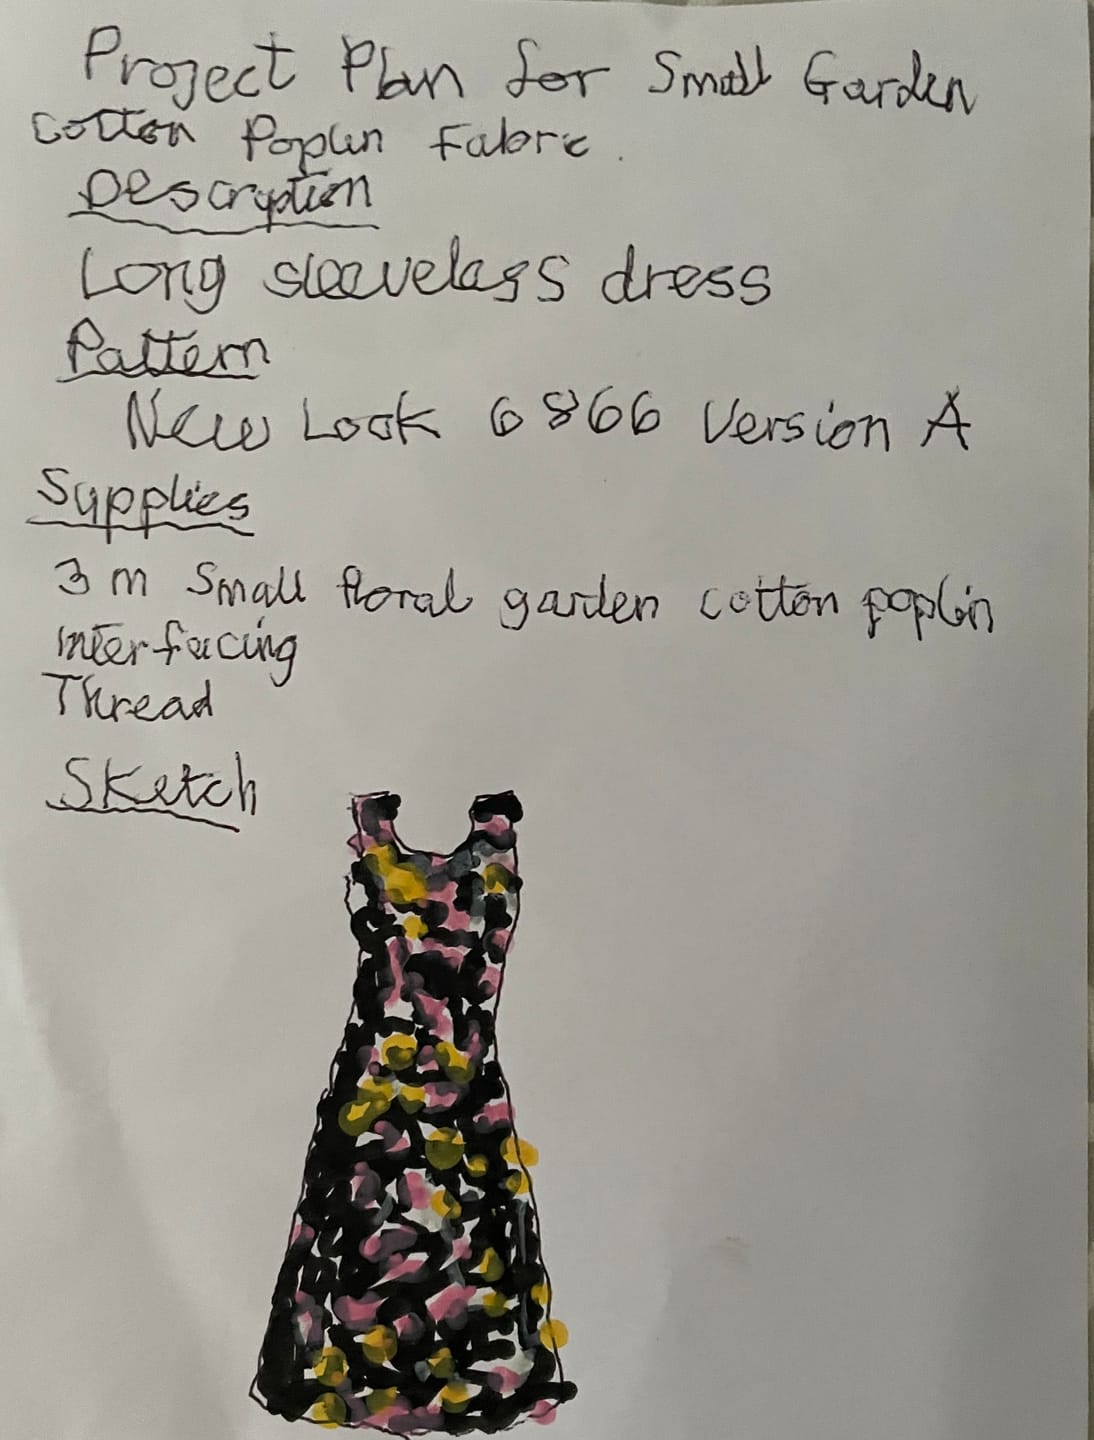 Project Plan for Small Garden
Cotton Poplin Fabric.
Description
Long sleeveless dress
Pattern
New Look 6866 Version A
Supplies
3 m Small floral garden cotton poplin
Interfacing
Thread
Sketch